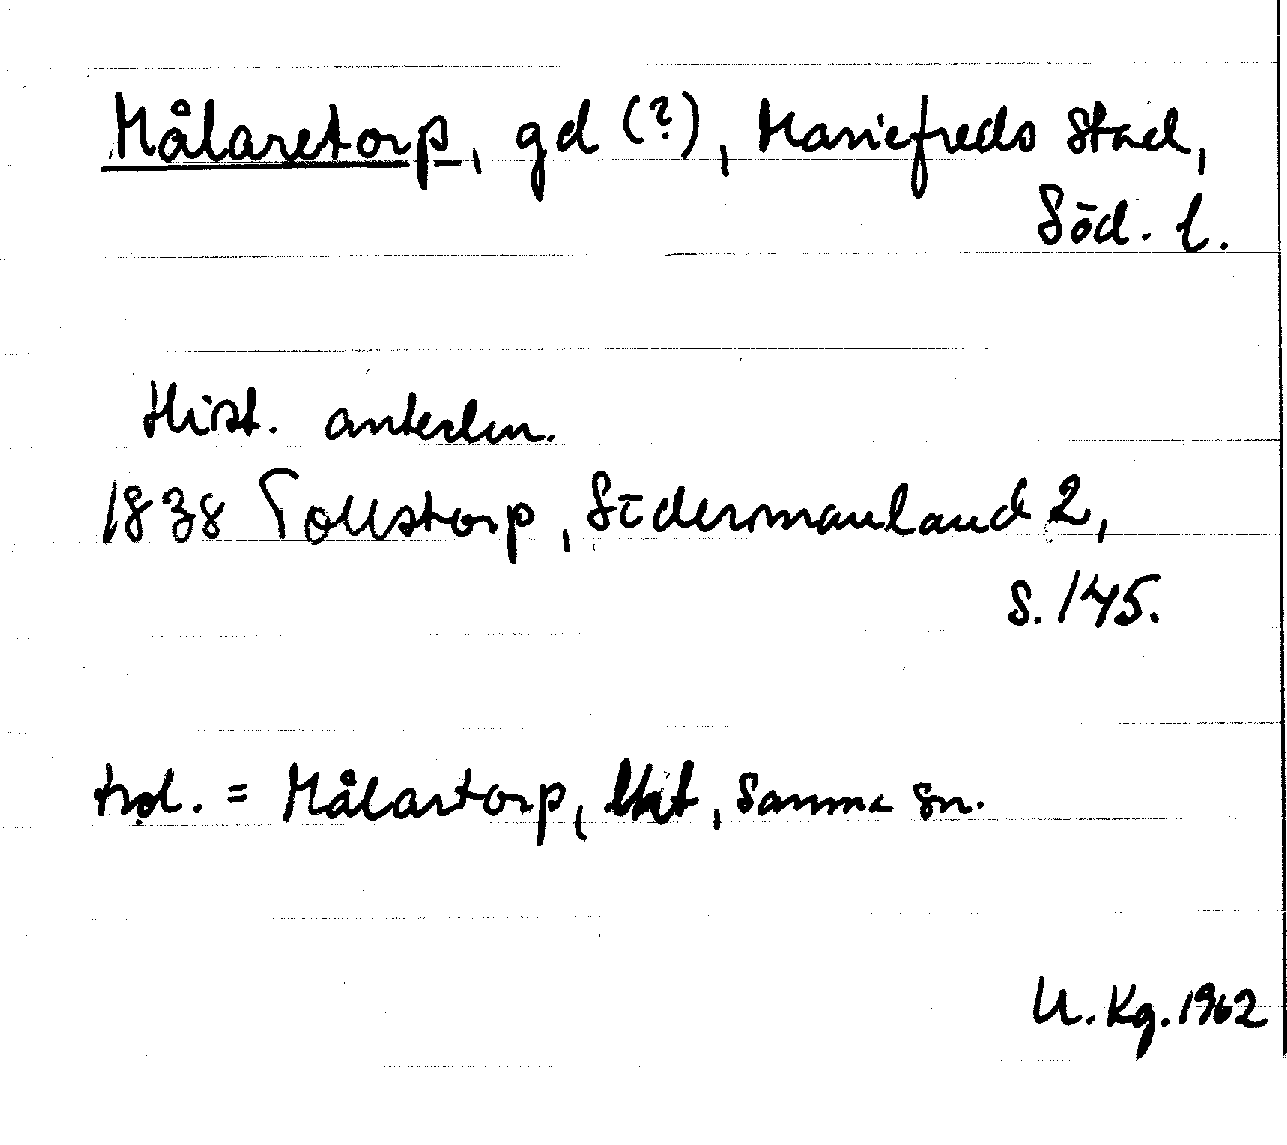 Målaretorp, gd (?), Mariefreds stad,
Söd. l.
Hist. anteckn.
1838 Tollstorp, Södermanland 2,
s. 145.
= Målartorp, samma sn.
U. Kg. 1962